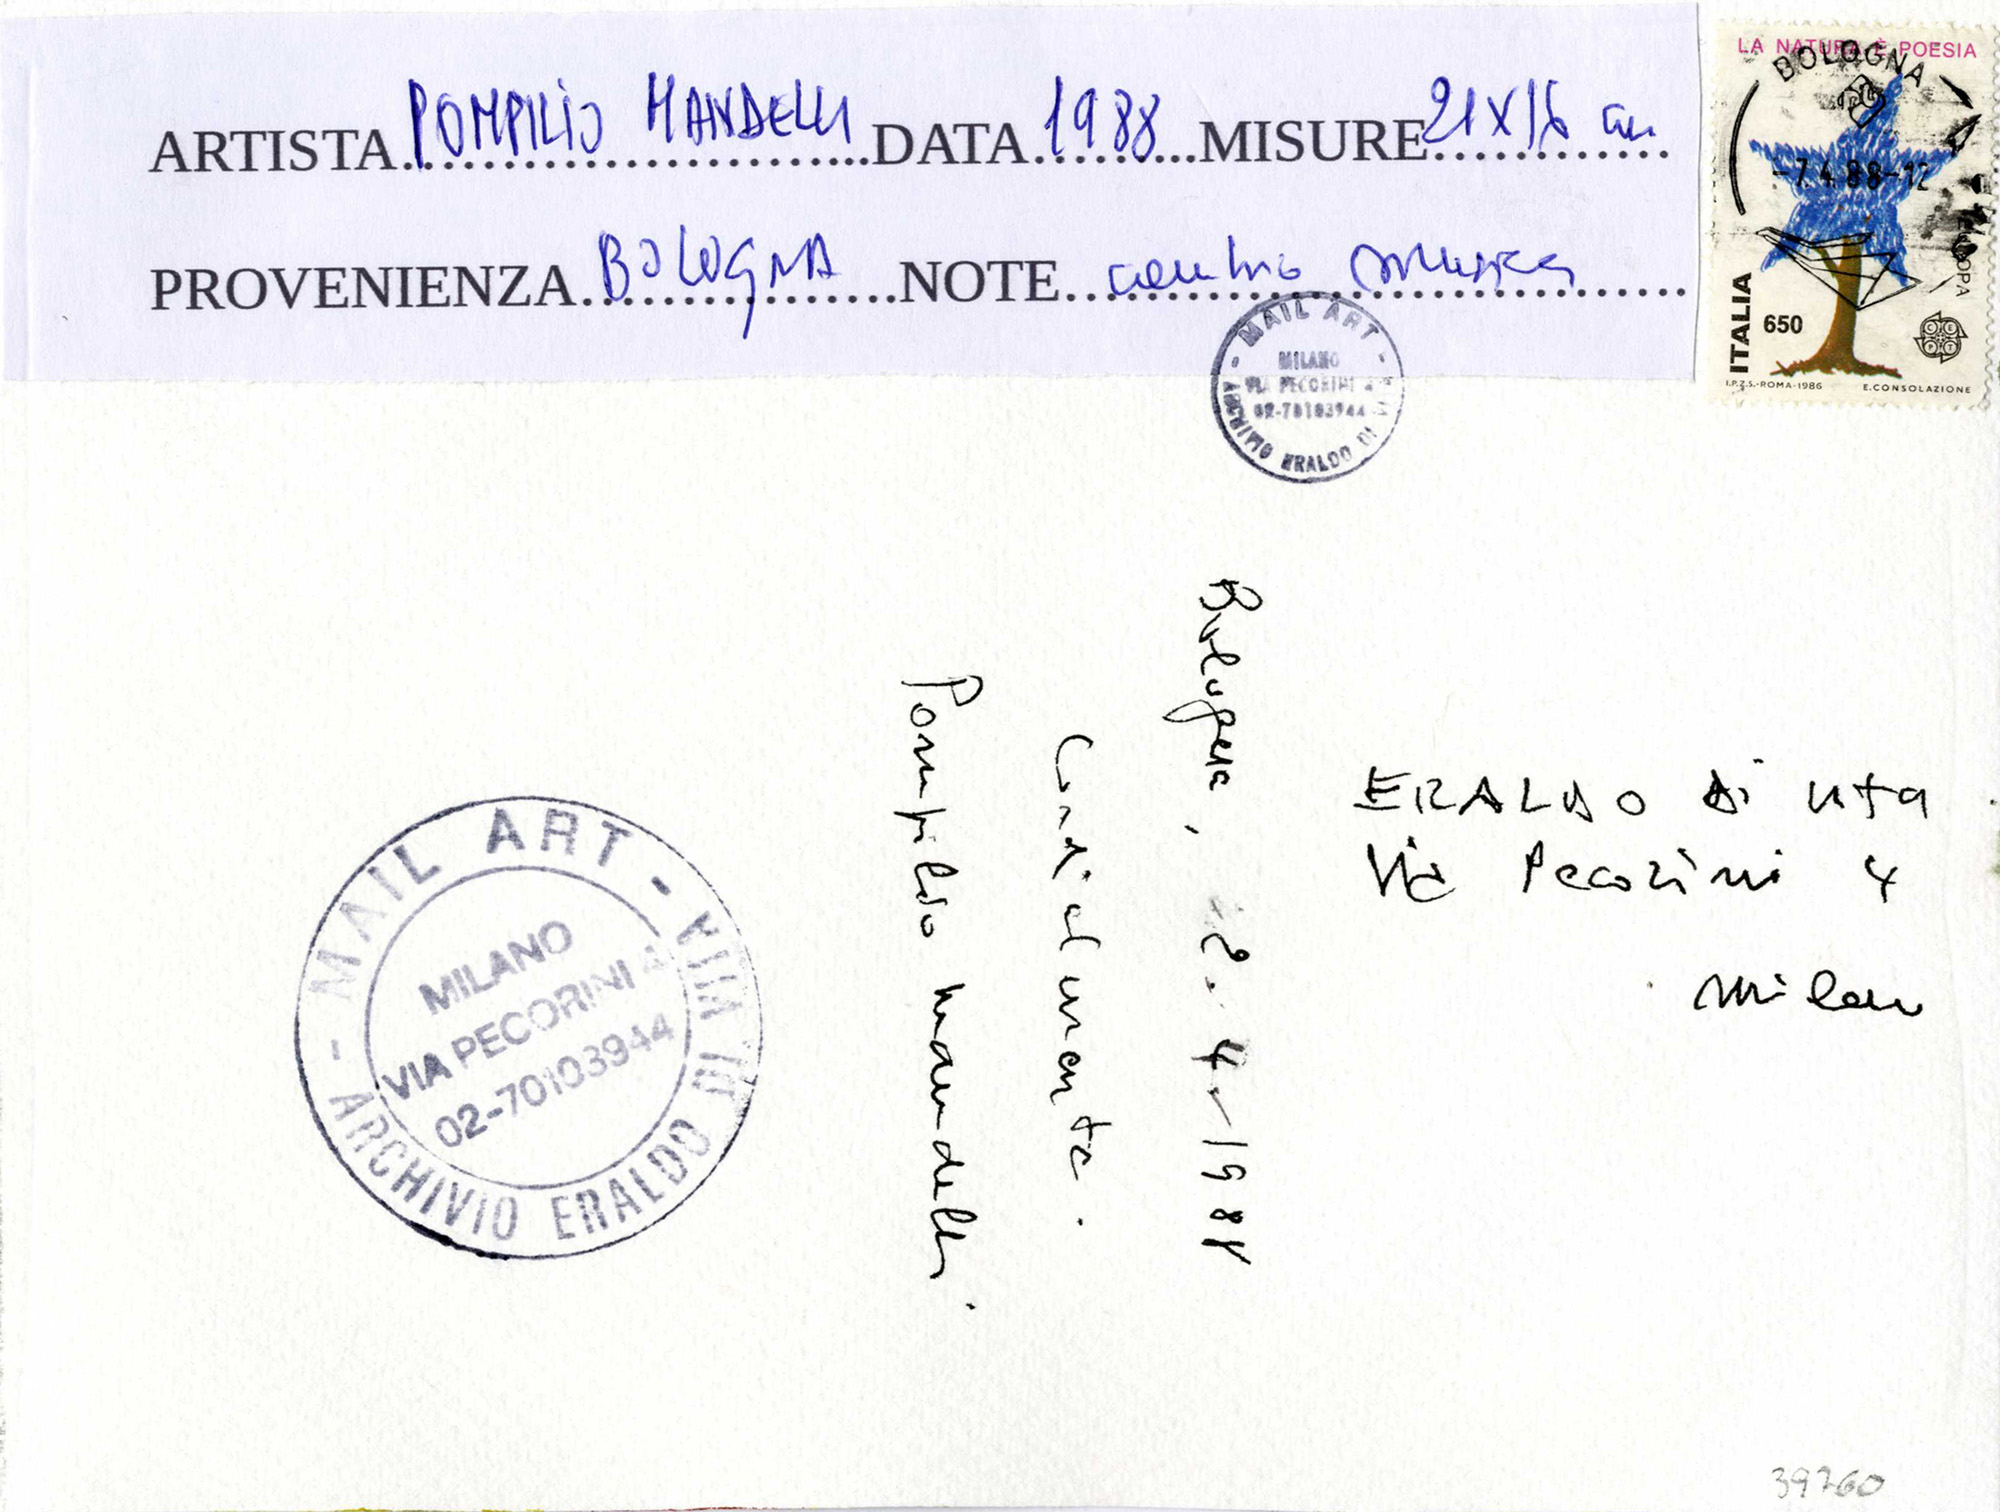 ARTISTA POMPILIO MANDELLI DATA 1988 MISURE 21X16 cm
PROVENIENZA BOLOGNA NOTE musica
LA NATURA È POESIA
BOLOGNA
-7.4.88-12
ITALIA
650
I.P.Z.S.-ROMA-1986 E.CONSOLAZIONE
MAIL ART
MILANO
VIA PECORINI 4
02-70103944
ARCHIVIO ERALDO DI VITA
Bologna, 2.4.1988
Cordialmente.
Pompilio Mandelli.
ERALDO di vita
Via Pecorini 4
Milano
MAIL ART
MILANO
VIA PECORINI 4
02-70103944
ARCHIVIO ERALDO DI VITA
39760